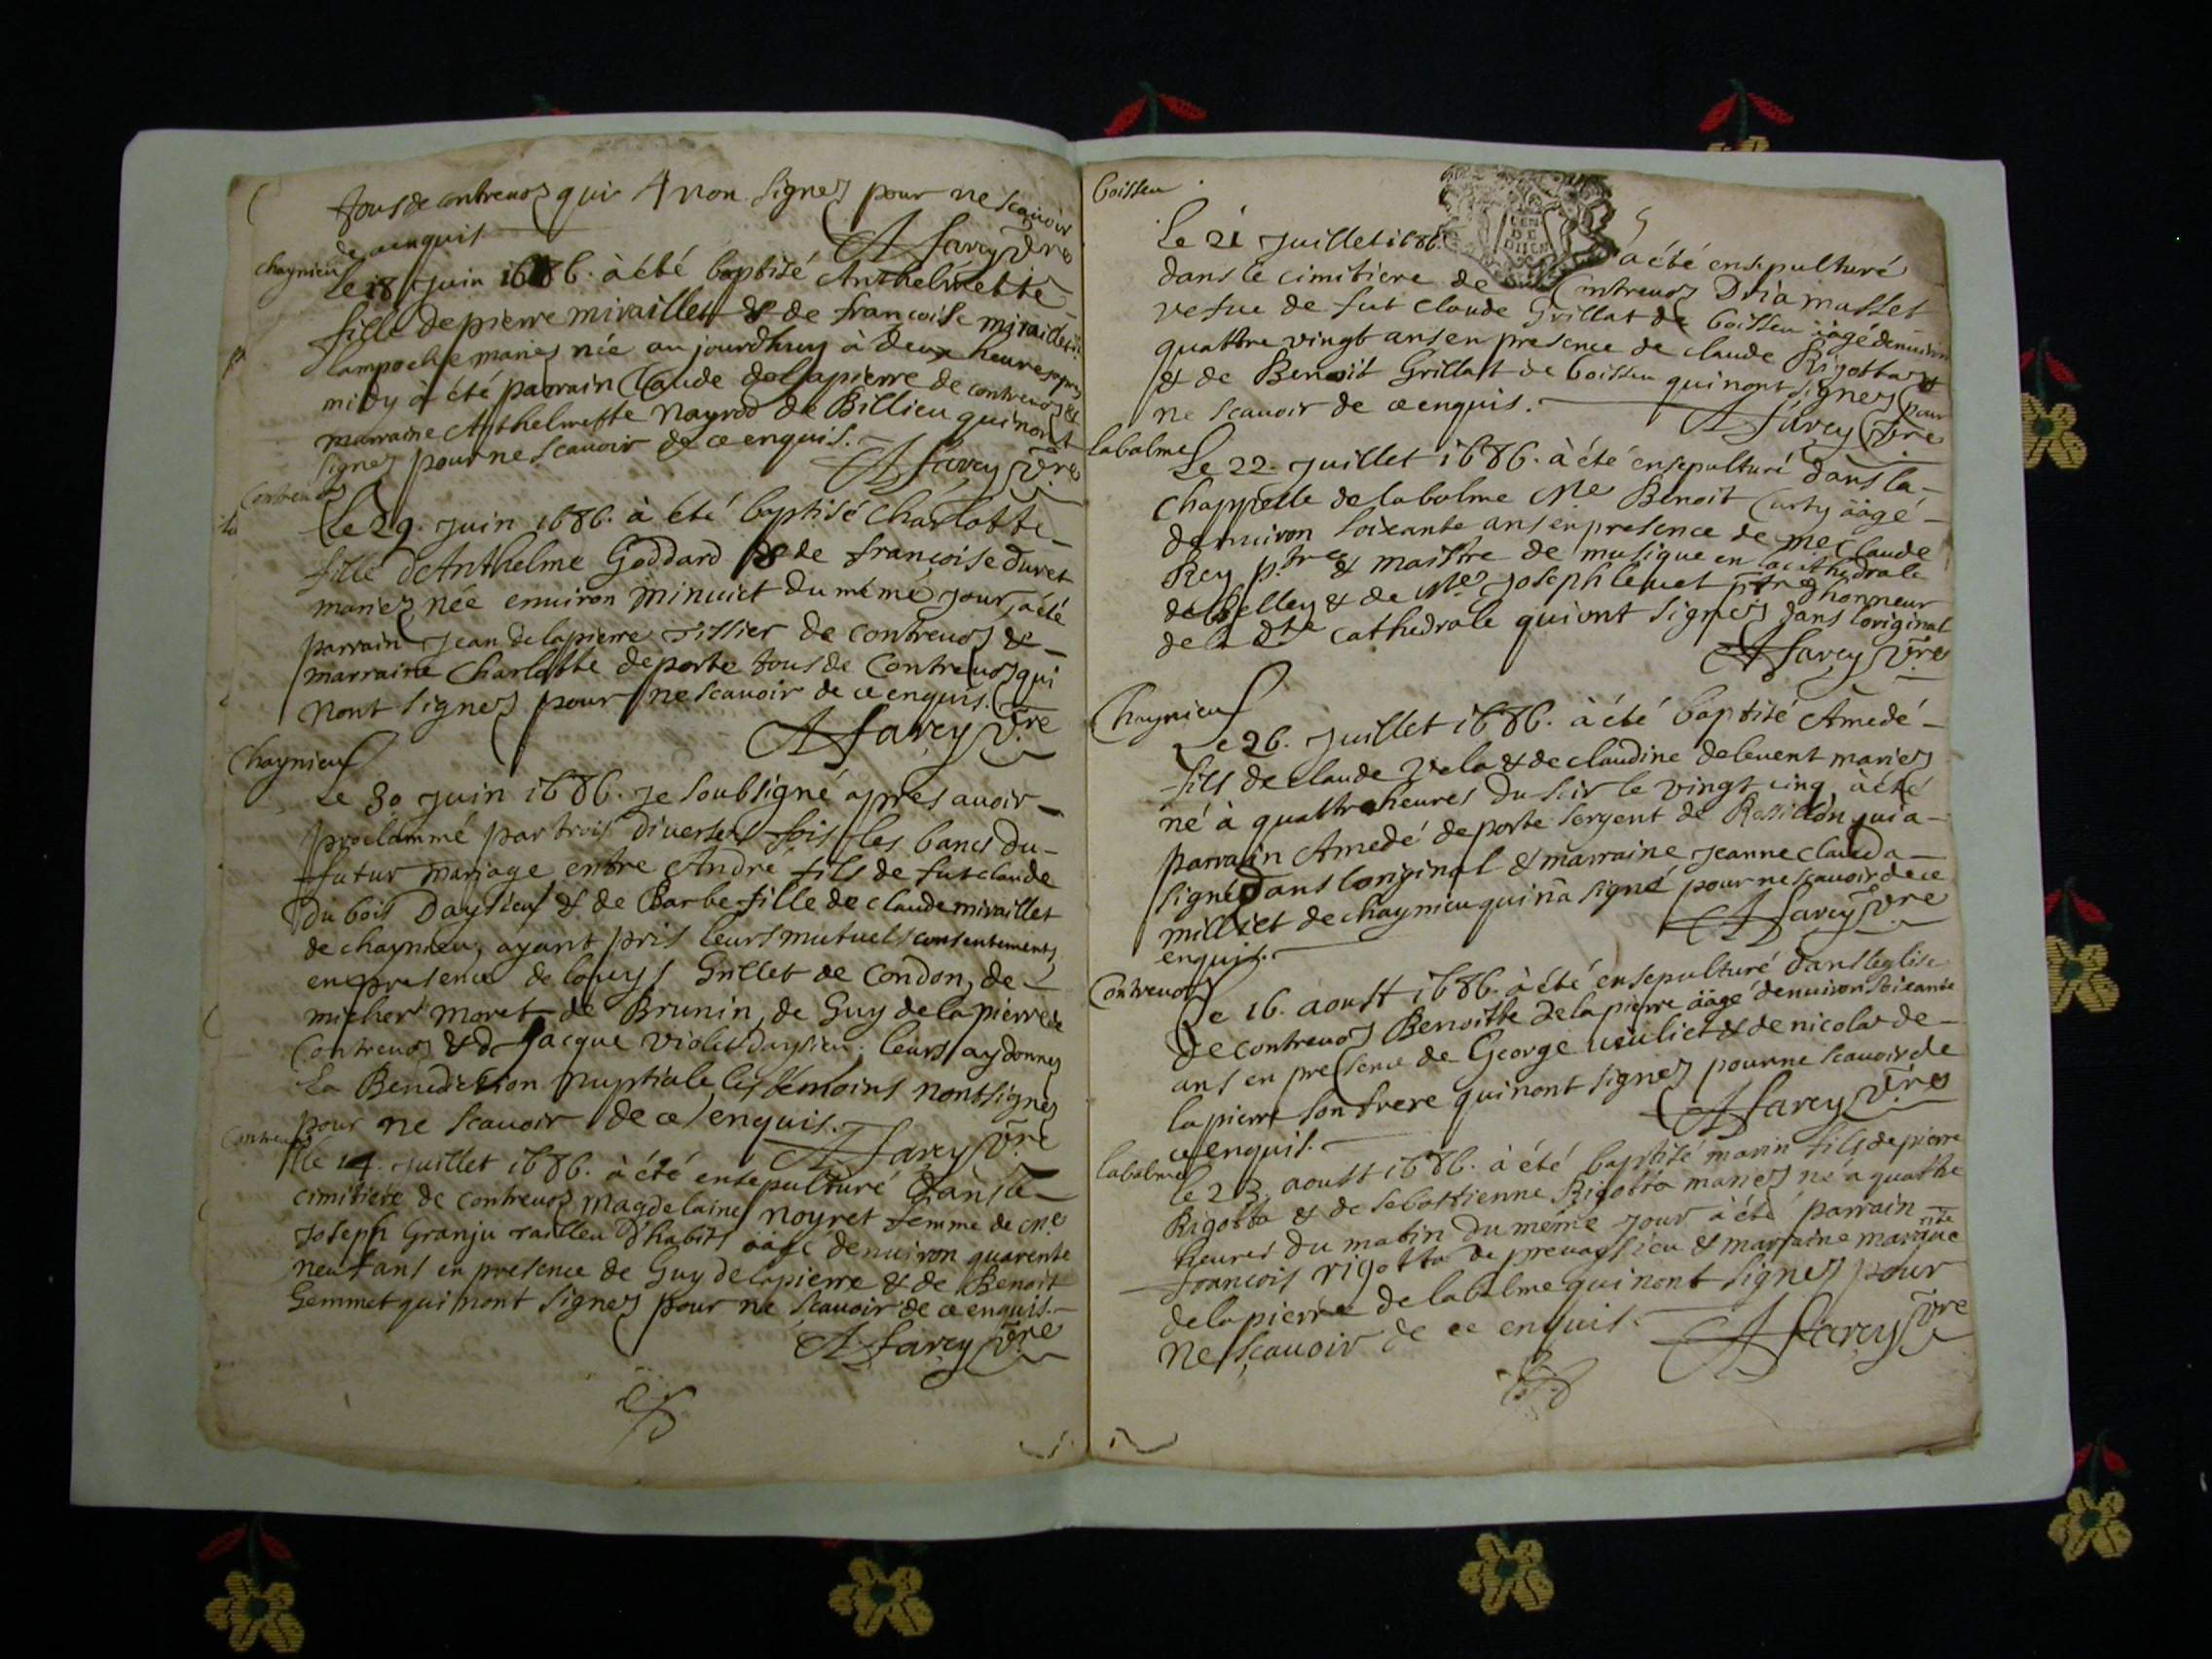 tous de contrevoz qui non signez pour ne scavoir
de ce enquis
A farcy vre
chaynieu
Le 18 juin 1686. à été baptisé Anthelmette
fille de pierre miraillet & de francoise miraillet
lampoche mariez née aujourdhuy à deux heures apres
midy à été parrain Claude delapierre de contrevoz &
marraine Anthelmette nayrod de Billieu qui nont
signez pour ne scavoir de ce enquis.
A farcy vre
Contrevoz
Le 29. juin 1686. à été baptisé charlotte
fille d'Anthelme Goddard & de françoise duret
mariez née environ minuict du même jour, a été
parrain jean delapierre tissier de contrevoz &
marraine charlotte deporte tous de Contrevoz qui
nont signez pour ne scavoir de ce enquis.
A farcy vre
Chaynieu
Le 30 juin 1686. je soubsigné appres avoir
proclammé par trois diverses fois les bancs du
futur mariage entre André fils de fut claude
du bois Daysieu & de Barbe fille de claude miraillet
de chaynieu, ayant pris leurs mutuels consentements,
en presence de louys Gullet de Condon, de
micher moret de Brunin, de Guy de la pierre de
Contrevoz & de jacque violet Daysieu; leurs ay donnez
La Benediction nuptiale les témoins nont signez
pour ne scavoir de ce enquis.
A farcy vre
Contrevoz
Le 14. juillet 1686. à été ensepulturé dans le
cimitiere de contrevoz magdelaine noyret femme de me
Joseph Granju tailleu d'habits ààgé denuiron quarente
neuf ans en presence de Guy delapierre & de Benoit
Gemmet qui nont signez pour ne scavoir de ce enquis.
A farcy vre
boissieu
Le 21 juillet 1686. a été ensepulturé
GEN
DE
DIION
dans le cimitiere de Contrevoz Dria masset
vefue de fut claude Grillat de boissieu ààgé denuiron
quattre vingt ans en presence de claude Rigottaz
& de Benoit Grillat de boissieu qui nont signez pour
ne scavoir de ce enquis.
A farcy vre
labalme
Le 22. juillet 1686. à été ensepulturé dans la
chappelle de labalme Me Benoit Curty ààgé
denuiron soixante ans en presence de me Claude
Rey ptre & maistre de musique en la cathedrale
de belley & de Me joseph leuet ptre honneur
de la dte cathedrale qui ont signez dans loriginal
A farcy vre
Chaynieu
Le 26. juillet 1686. à été baptisé Amedé
fils de claude viela & de claudine deleuent mariez
né à quattre heures du soir le vingt cinq, à été
parrain Amedé deporte sergent de Rossillon qui a
signé dans loriginal & marraine jeanne clauda
milliet de chaynieu qui na signé pour ne scavoir de ce
enquis.
A farcy vre
Contrevoz
Le 16. aoust 1686. à été ensepulturé dans leglise
de contrevoz Benoitte delapierre ààgé denuiron soixante
ans en presence de George veuliet & de nicolas de
lapierre son frere qui nont signez pour ne scavoir de
ce enquis.
A farcy vre
labalme
Le 23. aoust 1686. à été baptisé marin fils de pierre
Rigotta & de sebastienne Rigotta mariez né a quattre
heures du matin du même jour à été parrain
francois rigotta de preuaysieu & marraine marguerite
delapierre de labalme qui nont signez pour
ne scavoir de ce enquis.
A farcy vre